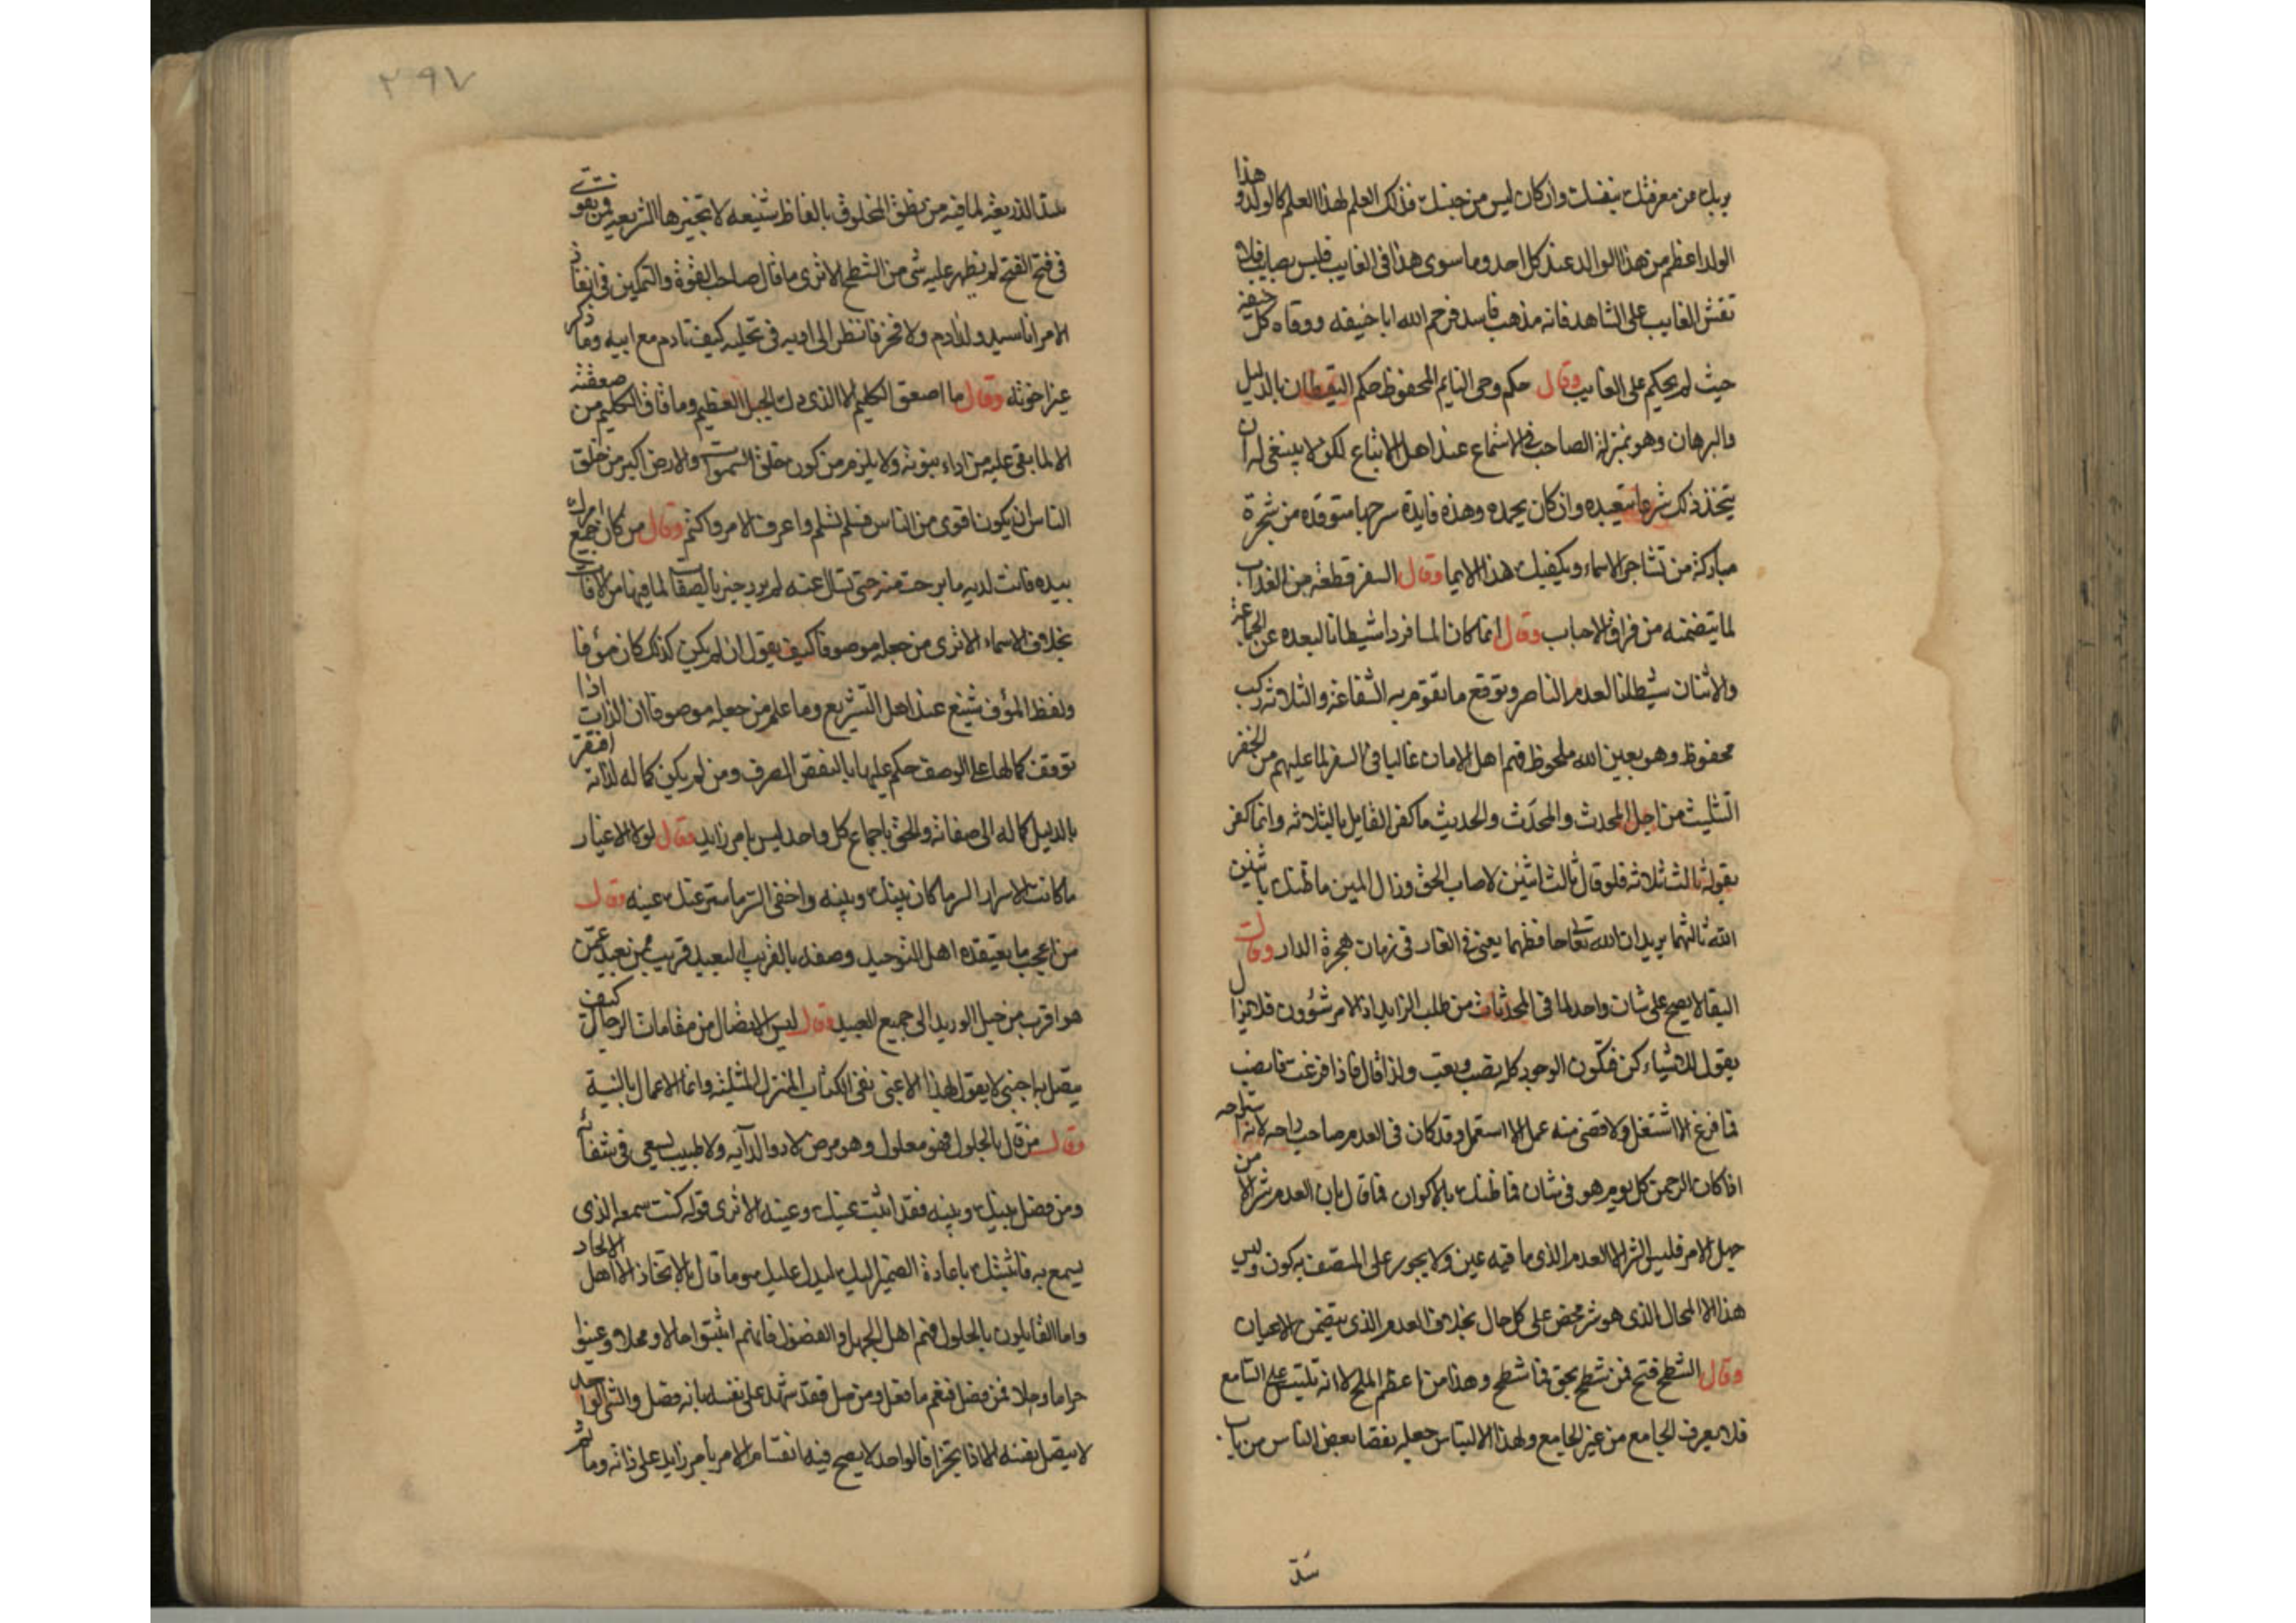 بربك من معرفتك بنفسك وان كان ليس من جنسك فذلك العلم لهذا العلم كالولد وهذا
الولد اعظم من هذا الوالد عند كل احد وما سوى هذا فى الغايب فليس بصايب فلا
تقس الغايب على الشاهد فانه مذهب فاسد فرحم الله ابا حنيفه ووقاه كل خيفة
حيث لم يحكم على الغايب وقال حكم وحى النايم المحفوظ حكم اليقظان بالدليل
والبرهان وهو بمنزلة الصاحب فى الاستماع عند اهل الاتباع لكن لا ينبغى له ان
يتخذ ذلك شرعا يتعبده وان كان يحمده وهذه فايدة سرجها متوقدة من شجرة
مباركة من تشاجر الاسماء ويكفيك هذا الايما وقال السفر قطعة من العذاب
لما يتضمنه من فراق الاحباب وقال انما كان المسافر واحدا شيطانا لبعده عن الجماعة
والاثنان شيطانا لعدم الناصر وتوقع ما تقوم به الشفاعة والثلاثة ركب
محفوظ وهو بعين الله ملحوظ فهم اهل الامان غالبا فى السفر لما عليهم من الخفر
التثليث من اجل المحدث والمحدَث والحديث ما كفر القايل بالثلاثه وانما كفر
بقوله ثالث ثلاثه فلو قال ثالث اثنين لاصاب الحق وزال المين ما ظنك باثنين
الله ثالثهما يريد ان الله تعالى حافظهما يعنى فى الغار فى زمان هجرة الدار وقال
البقا لا يصح على شان واحد لما فى المحدثات من طلب الزايد اذ الامر شؤون فلا يزال
يقول للاشياء كن فتكون الوجود كله نصب وتعب ولذا قال فاذا فرغت فانصب
فما فرغ الا اشتغل ولا قضى منه عمل الا استعمل وقد كان فى العدم صاحب راحه لانه استراحه
اذا كان الرحمن كل يوم هو فى شان فما ظنك بالاكوان فما قال بان العدم شر الا من
جهل الامر فليس الشر الا العدم الذى ما فيه عين ولا يجوز على المتصف به كون وليس
هذا الا المحال الذى هو شر محض على كل حال بخلاف العدم الذى يتضمن الاعيان
وقال الشطح فتح فمن شطح بحق فما شطح وهذا من اعظم الملح لانه تلبس على السامع
فلا يعرف الجامع من غير الجامع ولهذا الالتباس جعله نقصا بعض الناس من باب
سد
٢٩٧
سد الذريعة لما فيه من نطق المخلوق بالفاظ شنيعه لا تجيزها الشريعه ومن تقوى
فى فتح الفتح لم يظهر عليه شى من الشطح الا ترى ما قال صاحب القوة والتمكين فى انفاذ
الامر انا سيد ولد آدم ولا فخر فانظر الى ادبه فى تحليه كيف تادم مع ابيه وما ذكر
غير اخوته وقال ما اصعق الكليم الا الذى دك الجبل العظيم وما افاق الكليم من صعقته
الا لما بقى عليه من اداء نبوته ولا يلزم من كون خلق السموات والارض اكبر من خلق
الناس ان يكونا اقوى من الناس فسلم تسلم واعرف الامر واكتم وقال من كان جميع امرك
بيده فانت لديه ما برحت منه حتى تسال عنه لم يرد خبر بالصفات لما فيها من الافات
بخلاف الاسماء الا ترى من جعله موصوفا كيف يقول ان لم يكن كذلك كان مؤفا
ولفظ المؤف شنيع عند اهل التشريع وما علم من جعله موصوفا ان الذات اذا
توقف كمالها على الوصف حكم عليها بالنقص الصرف ومن لم يكن كماله لذاته افتقر
بالدليل كماله الى صفاته والحق باجماع كل واحد ليس بامر زايد وقال لولا الاغيار
ما كانت الاسرار السر ما كان بينك وبينه واخفى السر ما ستر عنك عينه وقال
من اعجب ما يعتقده اهل التوحيد وصفه بالقريب البعيد قريب ممن بعيد عمن
هو اقرب من حبل الوريد الى جميع العبيد وقال ليس الاتصال من مقامات الرجال كيف
يتصل به اجنبى لا يقول بهذا الا غبى نفى الكتاب المنزل المثلية وانما الاعمال بالنية
وقال من قال بالحلول فهو معلول وهو مرض لا دوا لدآيه ولا طبيب يسعى فى شفائه
ومن فصل بينك وبينه فقد اثبت عينك وعينه الا ترى قوله كنت سمعه الذى
يسمع به فاثبتك باعادة الضمير اليك ليدل عليك وما قال بالاتحاد الا اهل الالحاد
واما القايلون بالحلول فهم اهل الجهل والفضول فانهم اثبتوا حالا ومحلا وعينوا
حراما وحلا فمن فصل فنعم ما فعل ومن وصل فقد شهد على نفسه بانه فصل والشى الواحد
لا يتصل بنفسه الا اذا تجزا فالواحد لا يصح فيه انقسام الامر بامر زايد على ذاته وما ثم